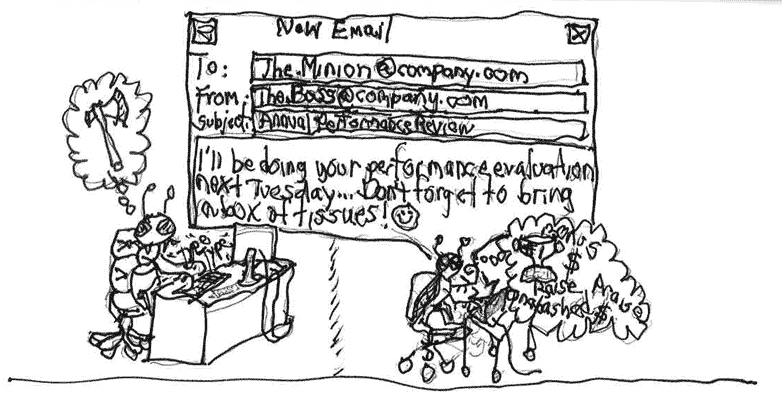 New Email
To: The.Minion@company.com
From: The.Boss@company.com
Subject: Annual Performance Review
I'll be doing your performance evaluation
next Tuesday... Don't forget to bring
a box of tissues!
Type
Type
$
Raise
$